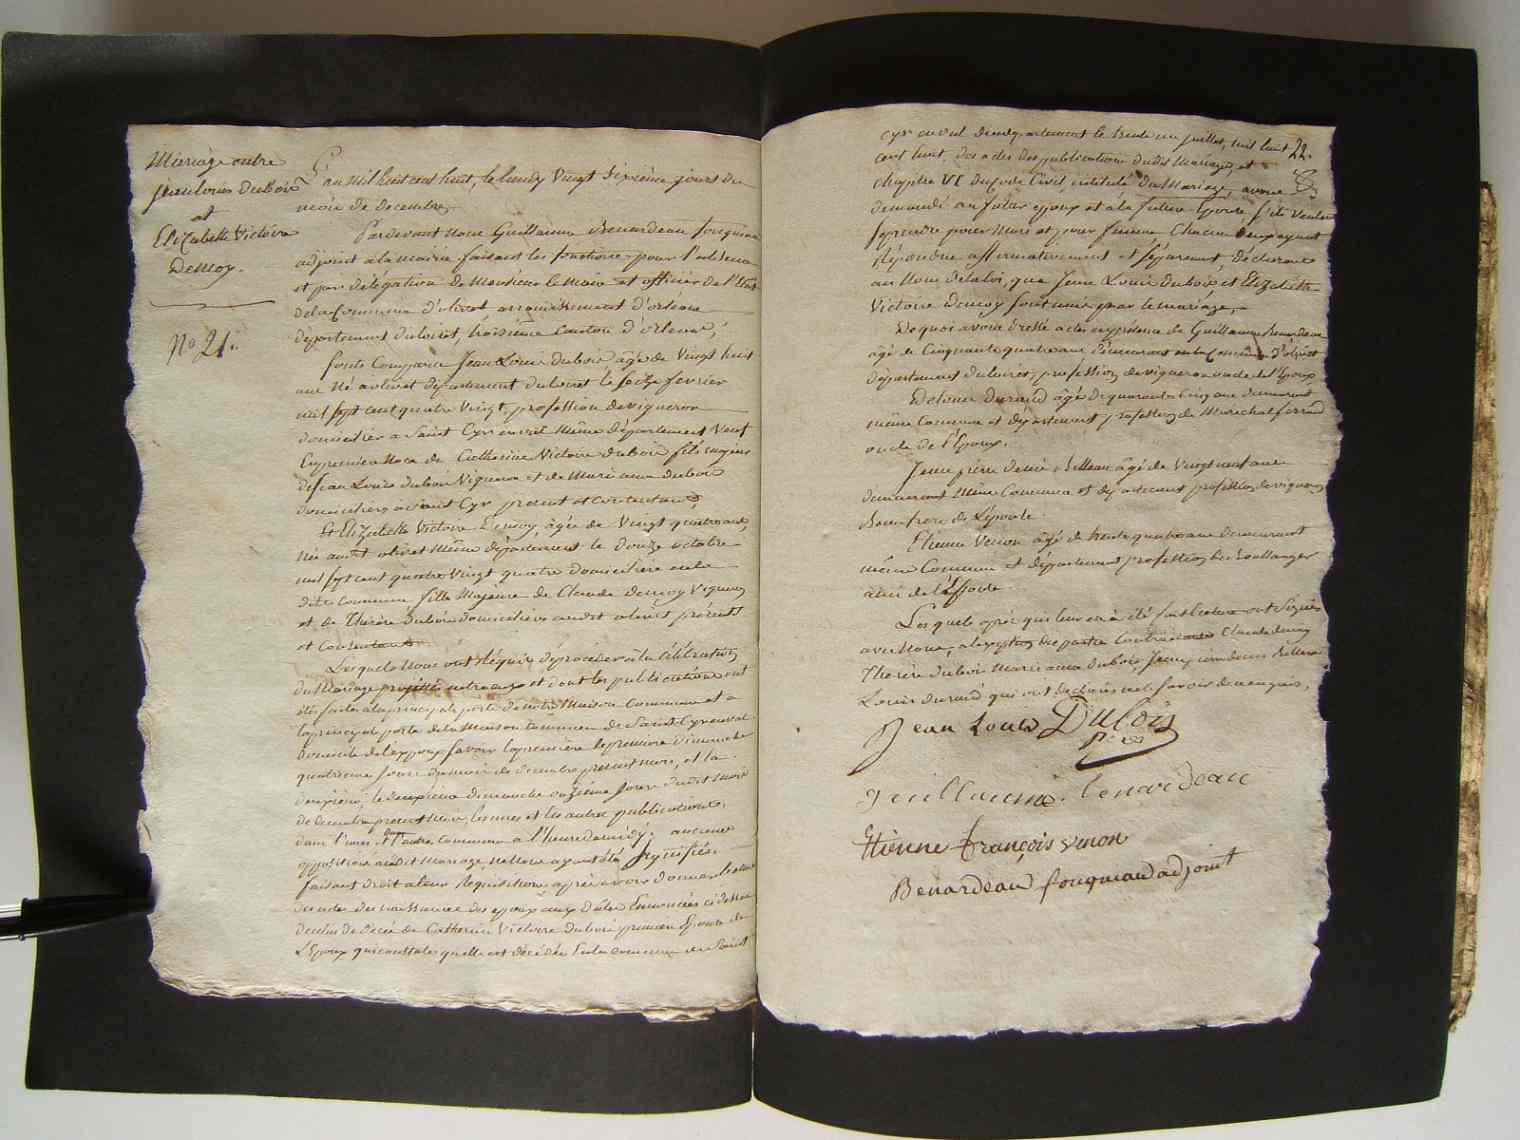 Mariage entre
jean louis Dubois
et
Elizabette Victoire
Demoy.
No. 21.
L'an mil huit cent huit, le lundy Vingt sixieme jours du
mois de decembre,
Pardevant Nous Guillaume Benardeau fouqueau
adjoint a la mairie faisant les fonctions pour l'absence
et par delégation de Monsieur le Maire et officier de l'Etat
de la Commune d'olivet arrondissement d'orleans
département du loiret, troisième Canton d'orleans,
sonts Comparu Jean Louis dubois âgé de Vingt huit
ans Né a olivet département du loiret le seize fevrier
mil sept cent quatre Vingt, profession de vigneron
domicilier a Saint Cyr en val Même département Veuf
En premier Noce de Catherine Victoire dubois fils majeur
de Jean Louis dubois Vigneron et de Marie anne dubois
domiciliers a saint Cyr present et Contentans,
Et Elizabette Victoire Demoy, âgée de Vingt quatre ans,
Née audit olivet même département le douze octobre
mil sept cent quatre Vingt quatre domiciliere en la
dite commune fille Majeure de Claude demoy Vigneron
et de Therèse dubois domiciliers audit olivet présents
et Consentants
Lesquels Nous ont Réquis de procéder à la Célébration
du Mariage projetté entre eux et dont les publications ont
été faites a la principale porte de notre Maison Commune et a
la principale porte de la Maison Commune de Saint Cyr en val
Domicile de l'epoux savoir la première le premier dimanche
quatrieme jours du mois de decembre present mois, et la
deuxième, le deuxieme dimanche onzieme jours dudit mois
de decembre present mois, les unes et les autres publications,
dans l'une et l'autre Commune a l'heure de midy; aucune
opposition audit mariage, ne Nous ayant été signifiée.
faisant droit a leur Requisition après avoir donner lecture
des actes de naissance des epoux aux dates Enoncées ci dessus
de celui de décée de Catherine Victoire dubois premiere Epouse de
L'Epoux qui constate quelle est décédée En la commune de Saint
22.
cyr en val dudepartement le trente un juillet, mil huit
cent huit, des actes des publications dudit Mariage, et
chapitre VI du Code Civil intitulé du Mariage, avons
demandé au futur epoux et a la future Epouse s'ils veulent
se prendre pour Mari et pour femme Chacun d'eux ayant
Répondue affirmativement et séparement, déclarons
au Nom de la loi, que Jean Louis dubois et Elizabette
Victoire demoy sont unis par le mariage,
De quoi avons dressé acte en présence de Guillaume Benardeau
âgé de Cinquante quatre ans, demeurant en la Commune d'olivet
département du loiret, profession de vigneron oncle de l'Epoux
De Louis Durand âgé de quarante Cinq ans demeurant
même Commune et département profession de Marechal ferrand
oncle de l'Epoux.
Jean pierre denis Billeau âgé de Vingt neuf ans
demeurant Même Commune et departement profession de vigneron
Beau frere de l'Epouse
Etienne Venon âgé de trente quatre ans demeurant
même Commune et département profession de Boullanger
ami de l'Epouse
Lesquels après qui leur en a été fait lecture ont Signés
avec Nous, a l'exception des parties Contractantes Claude demoy
Therèse dubois Marie anne dubois Jean pierre denis Billeau
Louis durand qui ont déclarés ne le savoir de ce enquis,
Jean Louis Dubois
Guillaume benardeau
Etienne françois venon
Benardeau fouqueau adjoint